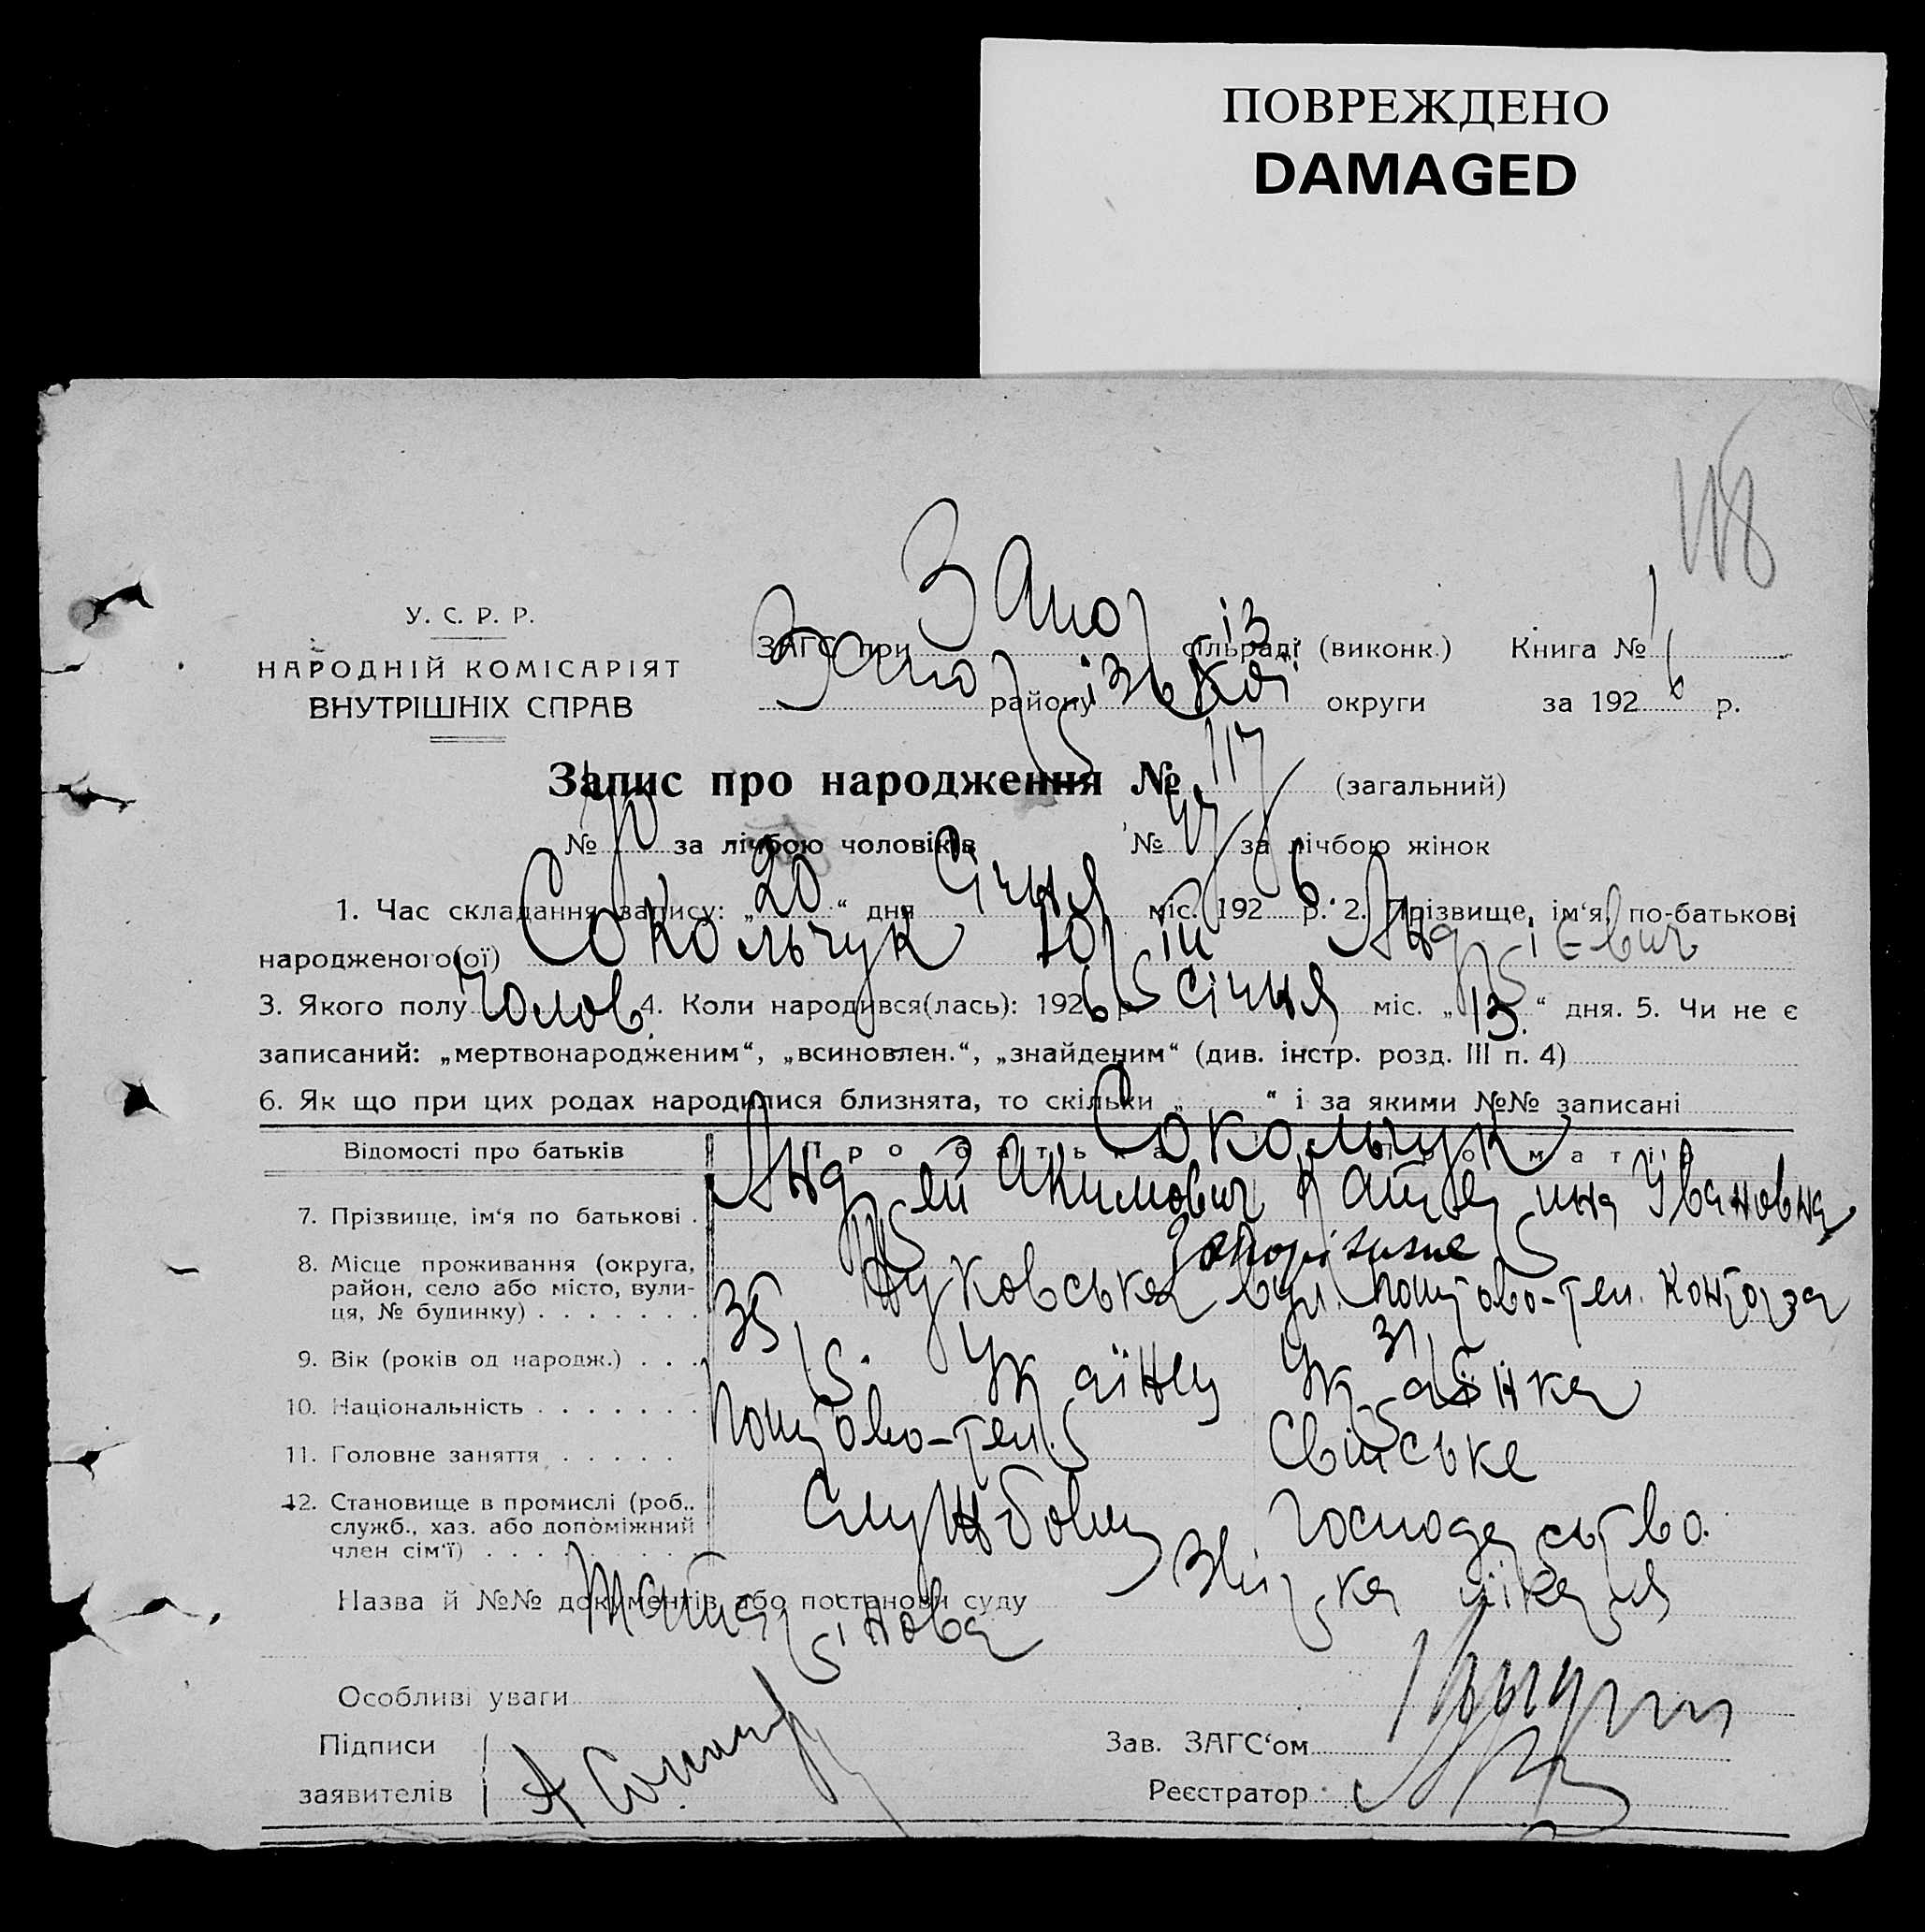 ПОВРЕЖДЕНО
DAMAGED
У. С. Р. Р.
НАРОДНІЙ КОМІСАРІЯТ
ВНУТРІШНІХ СПРАВ
ЗАГС при Запоріз сільраді (виконк.) Книга № 1
Запо району різької округи за 1926 р.
Запис про народження № 117 (загальний)
№ 70 за лічбою чоловіків № 47 за лічбою жінок
1. Час складання запису: „20“ дня Січня міс. 1926 р. 2. Прізвище, ім‘я, по-батькові
народженого(ої) Сокольчук Юрій Андрієвич
3. Якого полу Чолов. 4. Коли народився(лась): 1926 р. Січня міс. „13.“ дня. 5. Чи не є
записаний: „мертвонародженим“, „всиновлен.“, „знайденим“ (див. інстр. розд. III п. 4)
6. Як що при цих родах народилися близнята, то скільки „ “ і за якими №№ записані
Відомості про батьків Про батька Про матір
Сокольчук
7. Прізвище, ім‘я по батькові . Андрей Акимович Катерина Івановна
8. Місце проживання (округа, район, село або місто, вулиця, № будинку) . . . . . . . Запоріжже
Жуковська вул. Поштово-тел. Контора
9. Вік (років од народж.) . . . 35 31
10. Національність . . . . . . . Українец Українка
11. Головне заняття . . . . . Поштово-тел. Свійське
12. Становище в промислі (роб., служб., хаз. або допоміжний член сім‘ї) . . . . . . . . . Службовец господарство.
Назва й №№ документів або постанови суду лікаря
Особливі уваги
Підписи
заявителів
Зав. ЗАГС‘ом
Реєстратор